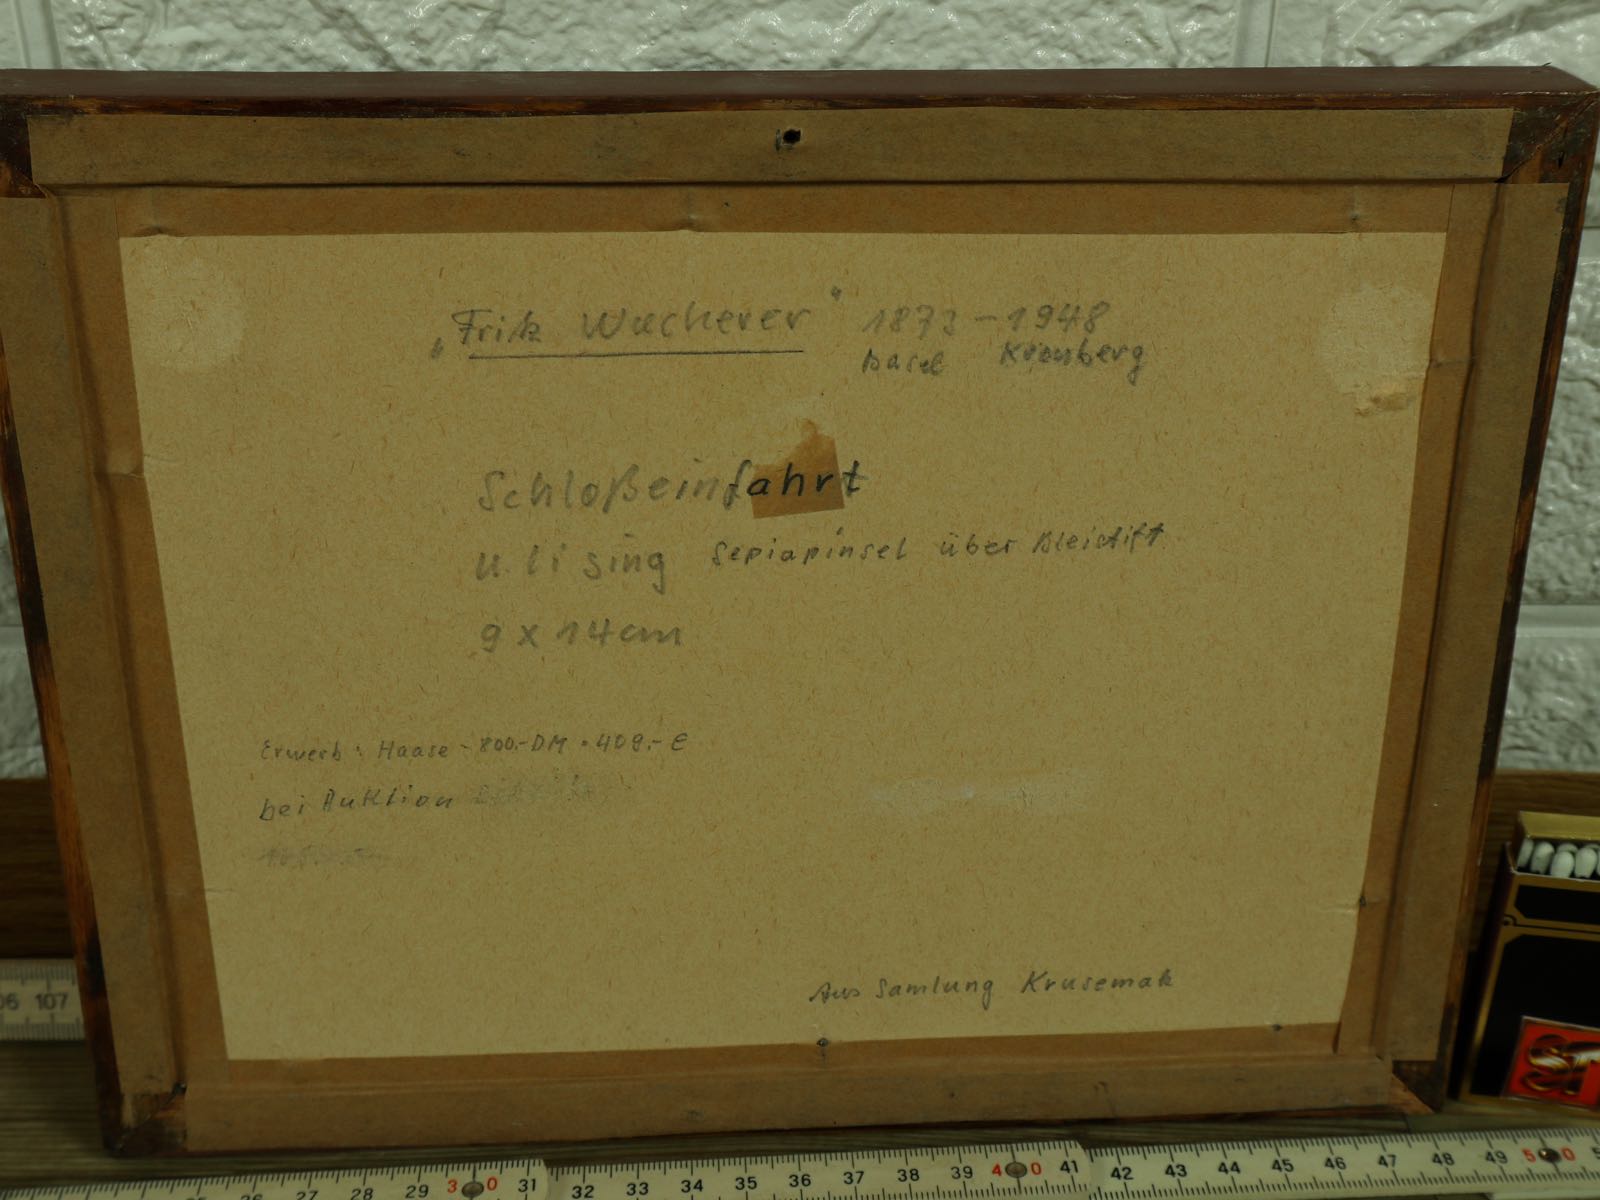 „Fritz Wucherer" 1873 - 1948
Basel Kronberg
Schloßeinfahrt
u. li sing Sepiapinsel über Bleistift
9 x 14 cm
Erwerb: Haase - 800.- DM • 409.- €
bei Auktion
Aus Samlung Krusemak
06 107
28 29 30 31 32 33 34 35 36 37 38 39 40 41 42 43 44 45 46 47 48 49 50